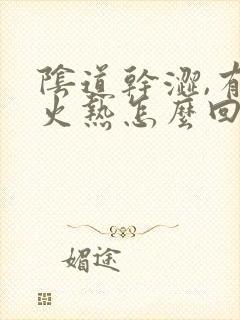 陰道幹澀,有
火熱怎麼回
媚途